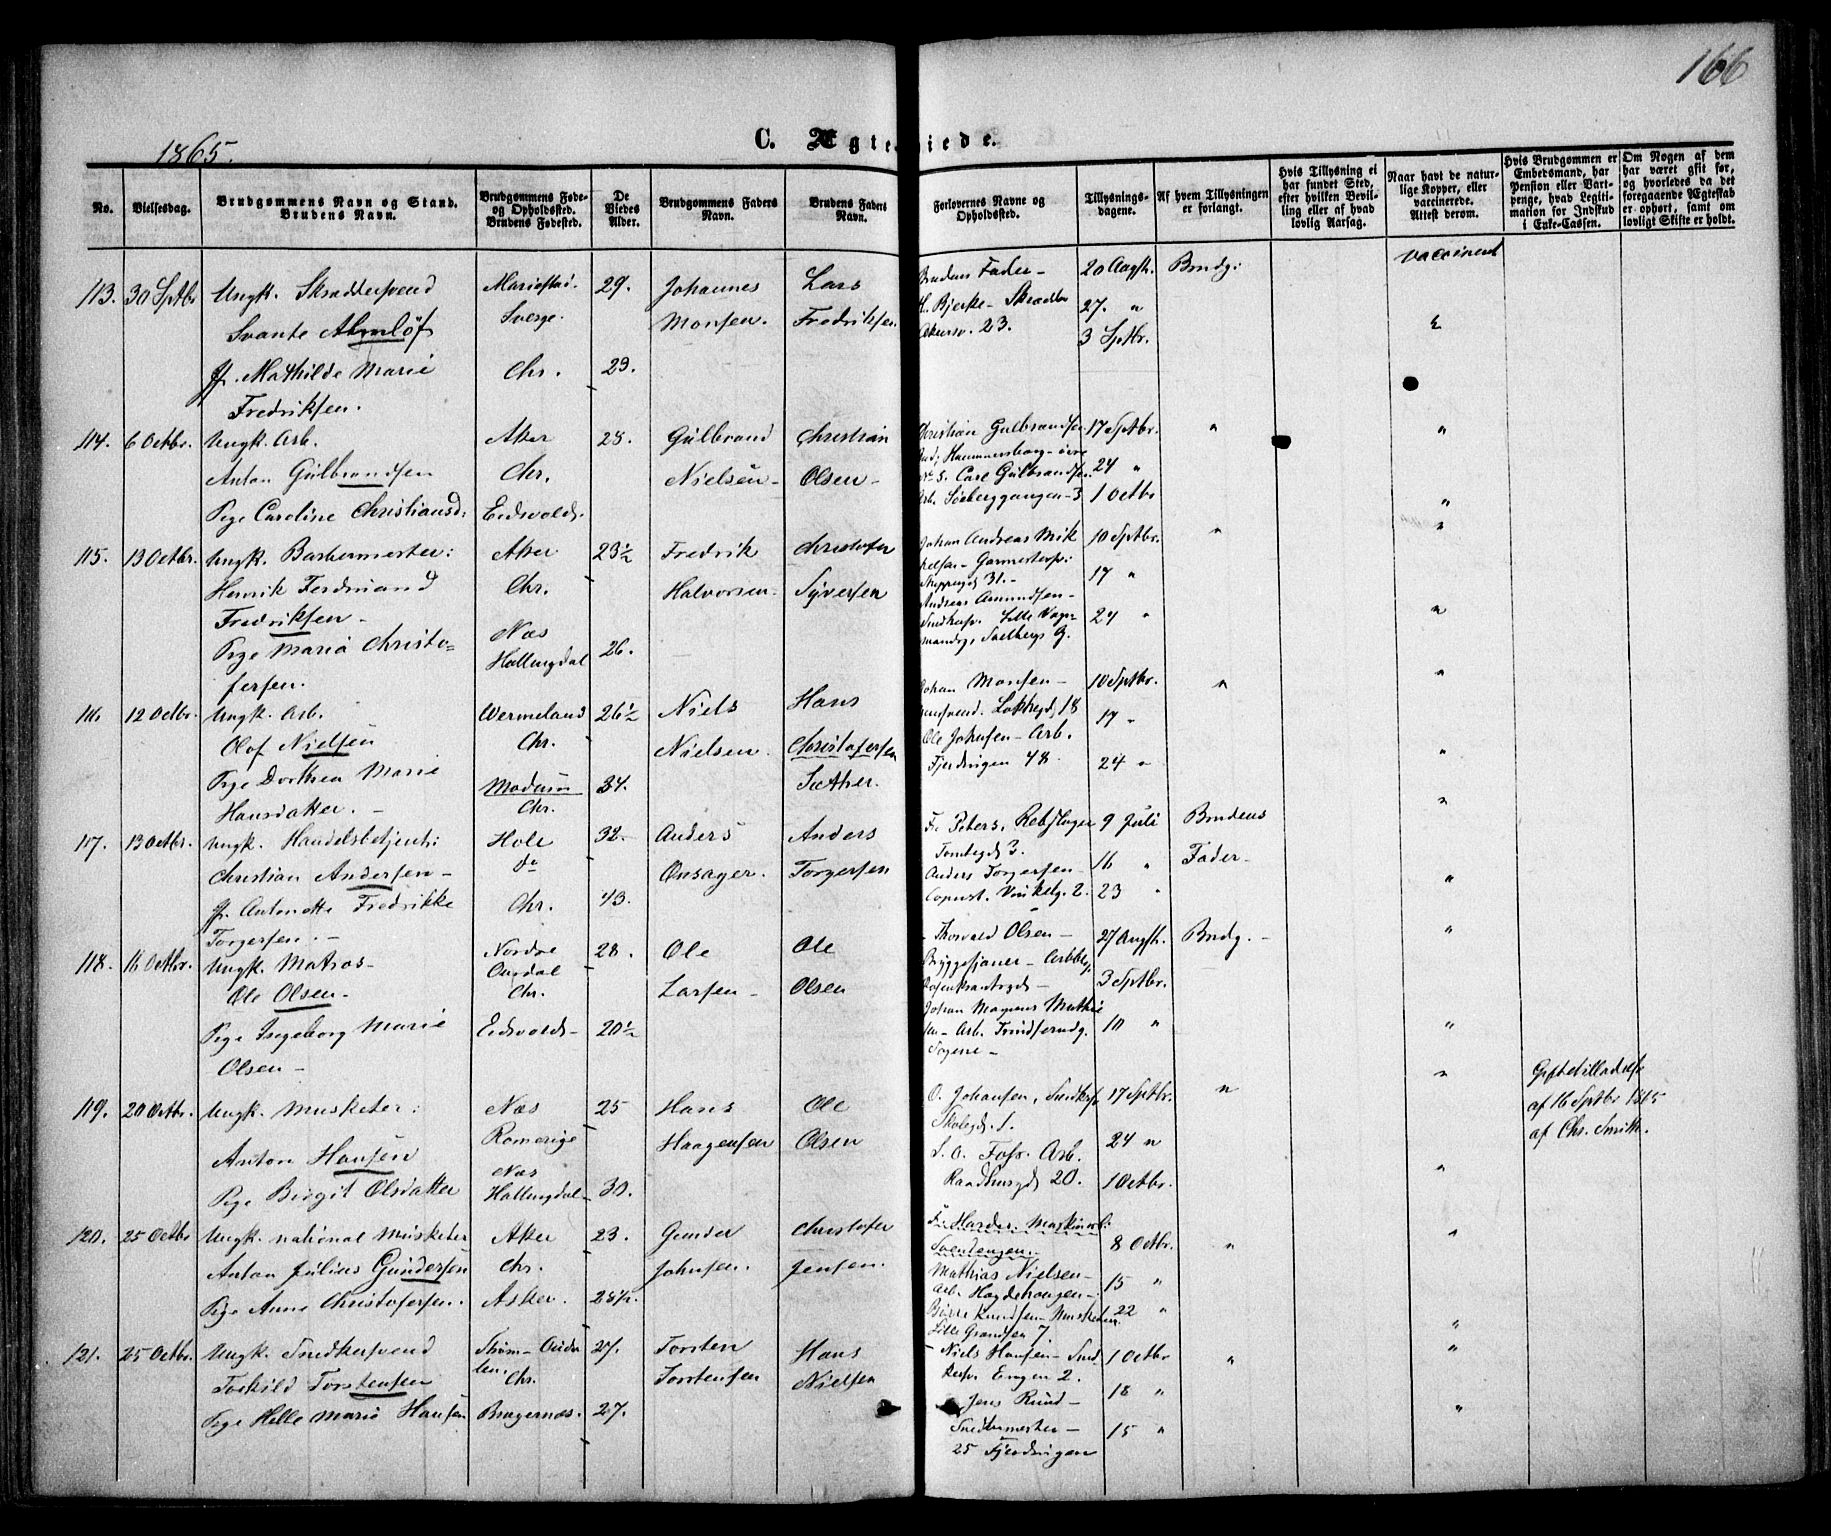 166
1865.
C. Ægteviede.
No.
Vielsesdag.
Brudgommens Navn og Stand.
Brudens Navn.
Brudgommens Føde-
og Opholdssted.
Brudens Fødested.
De
Viedes
Alder.
Brudgommens Faders
Navn.
Brudens Faders
Navn.
Forlovernes Navne og
Opholdssted.
Tillysnings-
dagene.
Af hvem Tillysningen
er forlangt.
Hvis Tillysning ei
har fundet Sted,
efter hvilken Bevil-
ling eller af hvad
lovlig Aarsag.
Naar havt de natur-
lige Kopper, eller
vaccinerede.
Attest derom.
Hvis Brudgommen er
Embedsmand, har
Pension eller Vart-
penge, hvad Legiti-
mation for Indskud
i Enke-Cassen.
Om Nogen af dem
har været gift før,
og hvorledes da det
foregaaende Ægteskab
er ophørt, samt om
lovligt Skifte er holdt.
113. 30 Sptbr Ungk. Skrædersvend Mariestad. 29. Johannes Lars Brudens Fader- 20 Augst. Brudg: vaccineret
Svante Almlöf Sverge. Monsen. Fredriksen. H. Bjerke- Skrædder 27. "
Akersv. 23. 3 Sptbr.
Jf. Mathilde Marie Chr. 23.
Fredriksen.
114. 6 Octbr. Ungk. Arb. Aker 28. Gulbrand Christian Christian Gulbrandsen 17 Sptbr. " "
Anton Gulbrandsen Chr. Nielsen- Olsen- Hammersborg- øvre 24 "
No 5. Carl Gulbrandsen
Arb. Söeberggangen-3 1 Octbr
Pige Caroline Christiansd: Eidsvold- "
115. 13 Octbr. Ungk. Barbermester: Aker 23½ Fredrik Christofer Johan Andreas Mik 10 Sptbr. " "
Henrik Ferdinand Chr. Halvorsen- Syversen kelsen- Garmestersv: 17 "
31.-
Fredriksen- Andreas Amundsen- 24 "
Snedkersv. Lille Vogn
mandsg. Solbergs G. "
Pige Maria Christo= Næs 26.
fersen. Hallingdal
116. 12 Octbr. Ungk. Arb. Wermeland 26½ Niels Hans Johan Monsen- 10 Sptbr. " "
Olof Nielsen Chr. Nielsen. Christofersen Lakkegd. 18 17 "
Ole Johnsen- Arb.
Pige Dorthea Marie Modum 34. Sæther. Fjerdingen 48. 24 " "
Hansdatter.- Chr.
117. 13 Octbr. Ungk. Handelsbetjent: Hole 32. Anders Anders F. Peters. Rebslager 9 Juli Brudens "
Christian Andersen- do Onsager. Torgersen Tomtegd. 3. 16 " Fader-
Anders Torgersen-
Jf. Antonette Fredrikke Chr. 43. Vinkelg. 2. 23 " "
Torgersen.-
118. 16 Octbr. Ungk. Matros- Nordre 28. Ole Ole Thorvald Olsen- 27 Augst. Brudg.- "
Ole Olsen- Aurdal Larsen- Olsen Bryggesjauer- 3 Sptbr.
Chr. Rosenkrantzgd-
Johan Magnus Mathie
Pige Ingeborg Marie Eidsvold- 20½ sen- Arb. 10 " "
Olsen-
119. 20 Octbr. Ungk. Musketer: Næs 25 Hans Ole O. Johansen, Snedkers. 17 Sptbr. " " Giftetilladelse
Anton Hansen Romerige Haagensen Olsen Skolegd. 1. 24 " af 16 Sptbr 1865
L. O. Foss. Arb. af Chr. Smith.
Pige Birgit Olsdatter Næs 30. Raadhusgd. 20. 1 Octbr. "
Hallingdal-
120. 25 Octbr Ungk. national Musketer Aker 23. Gunder Christofer F. Harder. Maskinarb: 8 Octbr. " "
Svendengen-
Anton Julius Gundersen Chr. Johnsen. Jensen. Mathias Nielsen- 15 "
Arb. Hagdehaugen-
Pige Anne Christofersen. Asker. 28½. Børre Knudsen- Musketeer 22 " "
Lille Grændsen 7.
121. 25 Octbr. Ungk. Snedkersvend Strøm- 27. Torsten Hans Niels Hansen- Sned 1 Octbr " "
Torkild Torstensen Chr. Torstensen Nielsen kersv Engen 2. 18 "
Pige Helle Maria Hansen Bragernæs. 27. Jens Rund- "
Snedkermester- 15 "
25 Fjerdingen